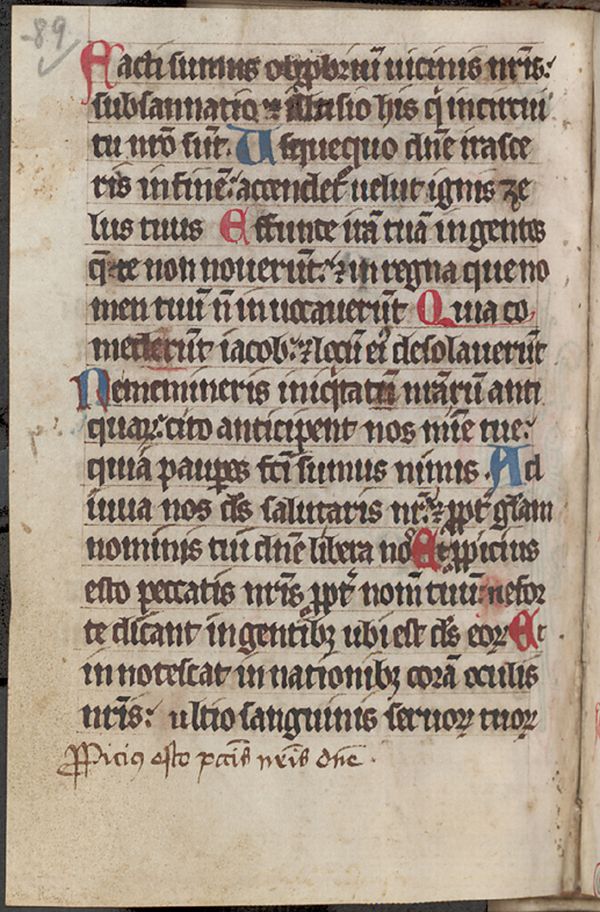 89
Facti sumus obp̄briū uicinis nr̄is:
subsannatio ⁊ illusio his q̄ in circui
tu nr̄o sūt. Usquequo dn̄e irasce
ris in finē: accendet᷑ uelut ignis ze
lus tuus Effunde irā tuā in gentes
q̄ te non nouerūt: ⁊ in regna que no
men tuū n̄ inuocauerūt Quia co
mederūt iacob: ⁊ locū ei᷒ desolauerūt
Nememineris iniq̇tatū nr̄arū anti
quaꝝ: cito anticipent nos mīe tue:
quiā pauꝑes fc̄i sumus nimis. Ad
iuua nos ds̄ salutaris nr̄: ⁊ ꝓpt̄ glām
nominis tui dn̄e libera nos Et ꝓpicius
esto peccatis nr̄is ꝓpt̄ nom̄ tuū: ne for
te dicant in gentibꝫ ubi est ds̄ eoꝝ Et
in notescat in nationibꝫ corā oculis
nr̄is: ultio sanguinis seruoꝝ tuoꝝ
Ꝓpicius esto pcc̄is nr̄is dn̄e.